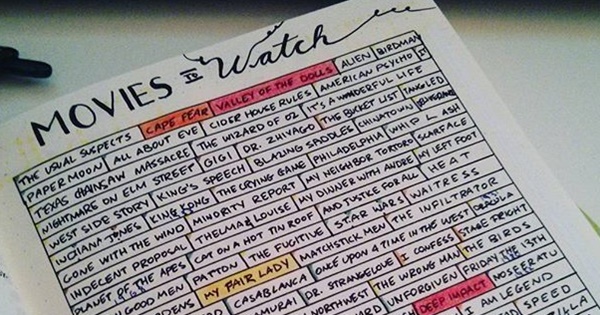 MOVIES TO Watch
THE USUAL SUSPECTS CAPE FEAR VALLEY OF THE DOLLS ALIEN BIRDMAN
PAPER MOON ALL ABOUT EVE CIDER HOUSE RULES AMERICAN PSYCHO IT
TEXAS CHAINSAW MASSACRE THE WIZARD OF OZ IT'S A WONDERFUL LIFE
NIGHTMARE ON ELM STREET GIGI DR. ZHIVAGO THE BUCKET LIST TANGLED
WEST SIDE STORY KING'S SPEECH BLAZING SADDLES CHINATOWN
INDIANA JONES KING KONG THE CRYING GAME PHILADELPHIA WHIPLASH
GONE WITH THE WIND MINORITY REPORT MY NEIGHBOR TORTORO SCARFACE
INDECENT PROPOSAL THELMA & LOUISE MY DINNER WITH ANDRE MY LEFT FOOT
PLANET OF THE APES CAT ON A HOT TIN ROOF AND JUSTICE FOR ALL HEAT
GOOD MEN PATTON THE FUGITIVE STAR WARS WAITRESS
DENS MY FAIR LADY MATCHSTICK MEN THE INFILTRATOR
CASABLANCA ONCE UPON A TIME IN THE WEST DRACULA
MURAI DR. STRANGELOVE I CONFESS STAGE FRIGHT
NORTHWEST THE WRONG MAN THE BIRDS
WARD UNFORGIVEN FRIDAY THE 13TH
DEEP IMPACT NOSFERATU
I AM LEGEND
SPEED
ZILLA